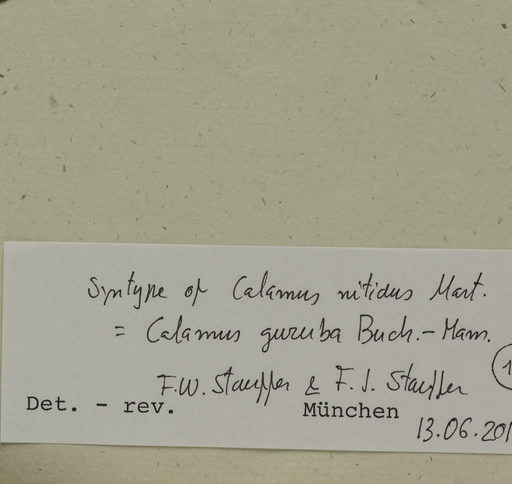 Syntype of Calamus nitidus Mart.
= Calamus guruba Buch.-Ham.
1
F.W. Stauffer & F.J. Stauffer
Det. - rev. München
13.06.201